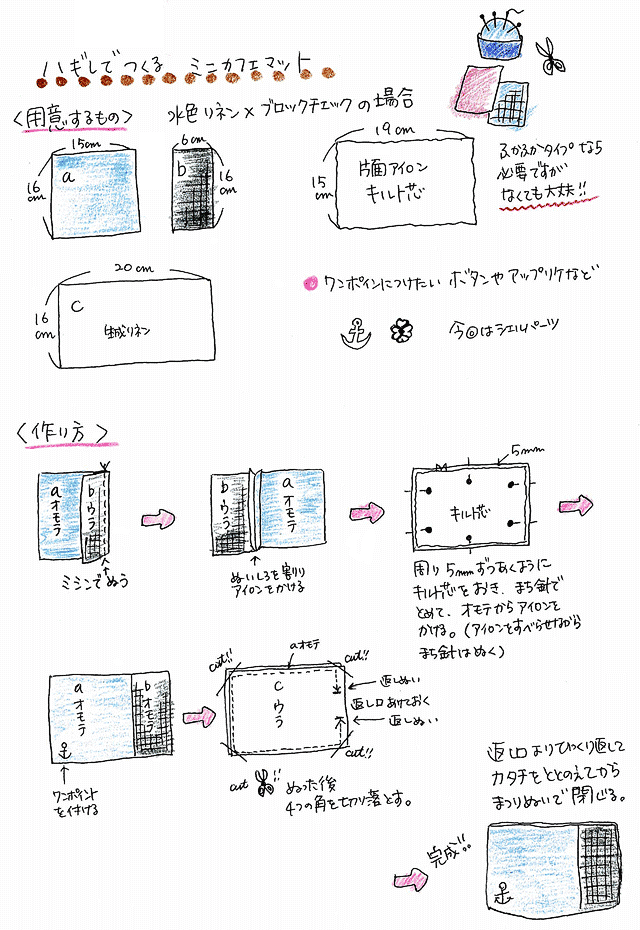 ハギレでつくる ミニカフェマット
<用意するもの> 水色リネン×ブロックチェックの場合
15cm
16cm
a
6cm
b
16cm
19cm
15cm
片面アイロン
キルト芯
ふかふかタイプなら
必要ですが
なくても大丈夫!!
20cm
16cm
C
生成リネン
ワンポイントにつけたい ボタンやアップリケなど
今回はシェルパーツ
<作り方>
aオモテ
bウラ
ミシンでぬう
bウラ
aオモテ
ぬいしろを割り
アイロンをかける
5mm
キルト芯
周り5mmずつあくように
キルト芯をおき、まち針で
とめて、オモテからアイロンを
かける。(アイロンをすべらせながら
まち針はぬく)
aオモテ
bオモテ
ワンポイント
を付ける
aオモテ
cut!!
cut!!
Cウラ
返しぬい
返し口あけておく
返しぬい
cut!!
cut!!
ぬった後
4つの角を切り落とす。
返し口よりひっくり返して
カタチをととのえてから
まつりぬいで閉じる。
完成!!